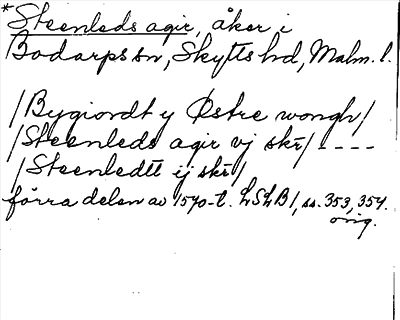 *Steenleds agir, åker i
Bodarps sn, Skytts hd, Malm. l.
/Bygiordt y Østre wongh/
/Steenleds agir vj skr/ ----
/Steenledtt ij skr/
förra delen av 1570-t. LSLB1, ss. 353, 354.
orig.